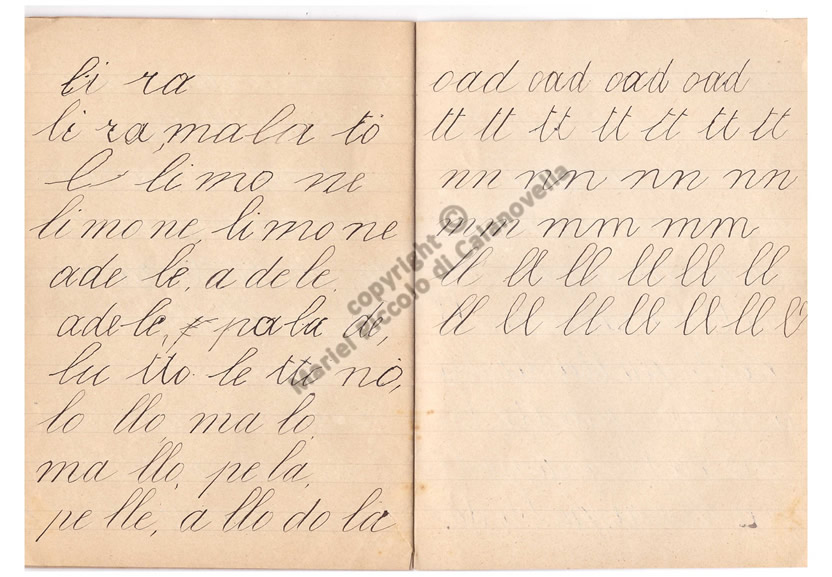 li ra
li ra, mala to
l limo ne
limone, limone
ade le, a de le,
adele, pala de,
lu tto le tti no,
lo llo, ma lo,
ma llo, pe la,
pe lle, a llo do la
oad oad oad oad
tt tt tt tt tt tt tt
nn nn nn nn
mm mm mm
ll ll ll ll ll ll
ll ll ll ll ll ll l
copyright ©
Mariel Piccolo di Catanovella